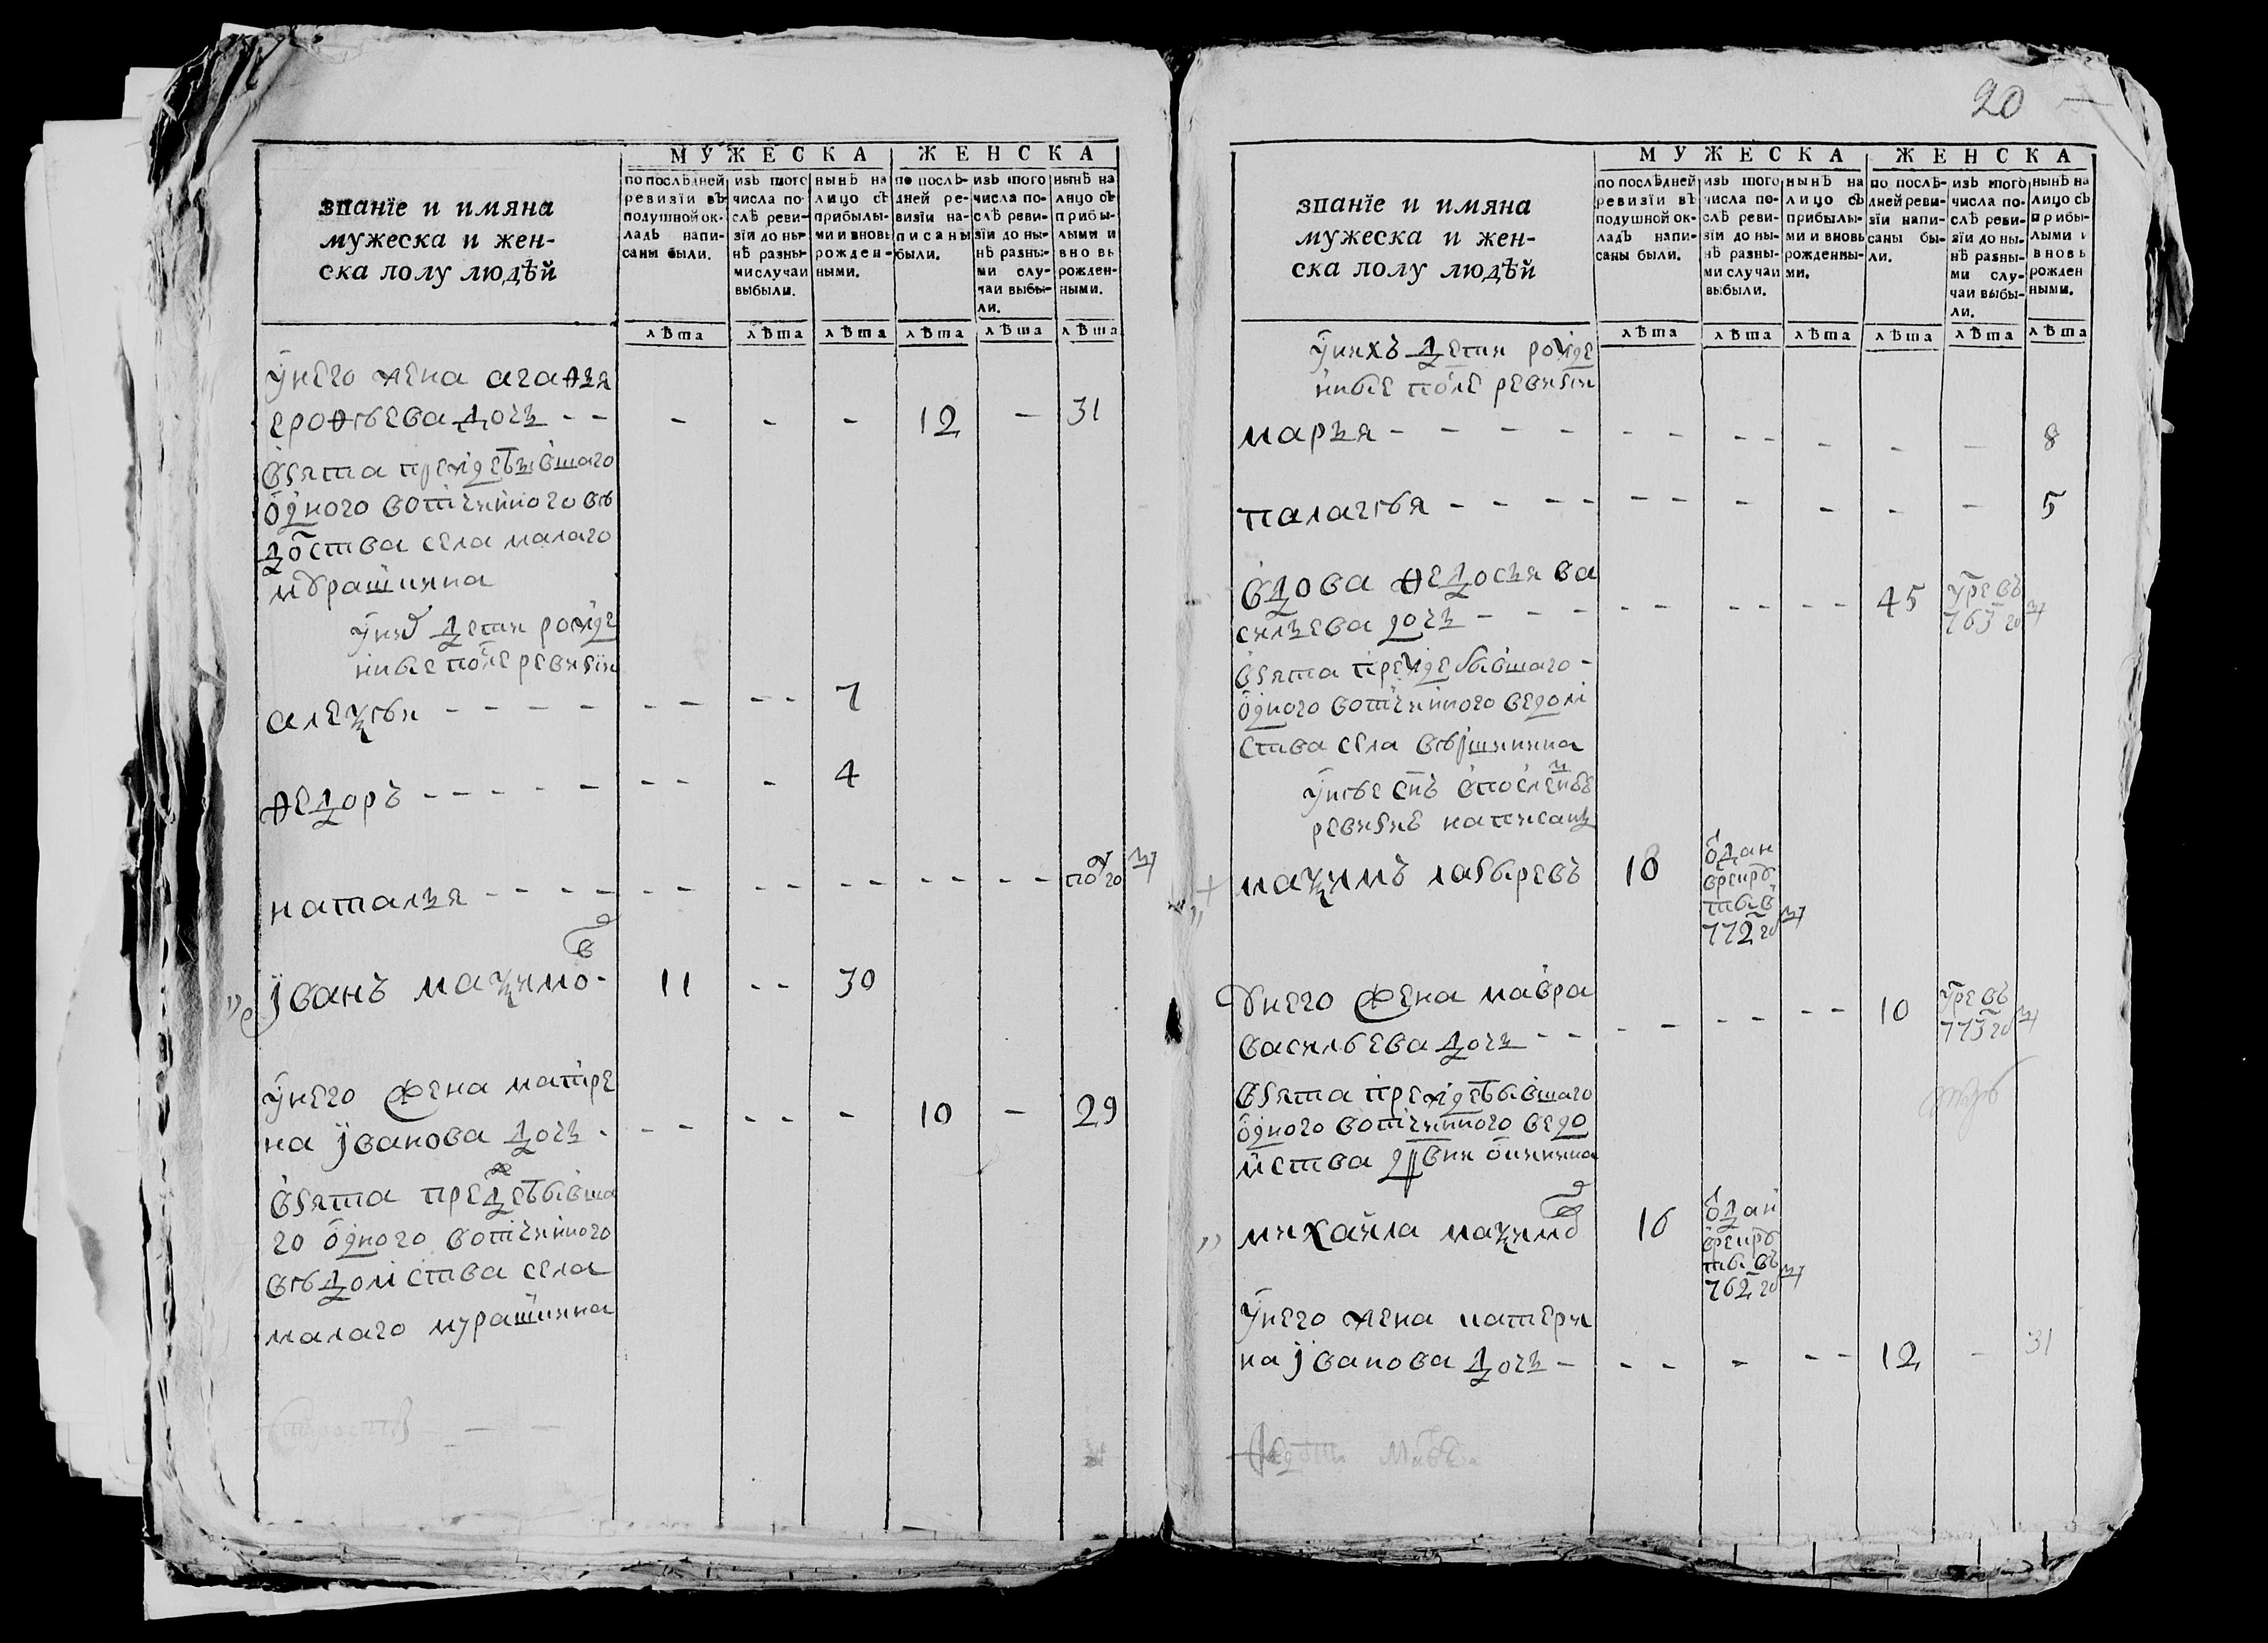 званїе и имяна
мужеска и жен-
ска полу людѣй
МУЖЕСКА
ЖЕНСКА
по послѣдней
ревизїи въ
подушной ок-
ладъ напи-
саны были.
изъ того
числа по-
слѣ реви-
зїи до ны-
нѣ разны-
ми случаи
выбыли.
нынѣ на
лицо съ
прибылы-
ми и вновь
рожден-
ными.
по послѣ-
дней ре-
визїи на-
писаны
были.
изъ того
числа по-
слѣ реви-
зїи до ны-
нѣ разны-
ми слу-
чаи выбы-
ли.
нынѣ на
лицо съ
прибы-
лыми и
вновь
рожден-
ными.
лѣта лѣта лѣта лѣта лѣта лѣта
у него жена агаѳья
ероѳѣева дочь - - - - - 12 - 31
взята прежде бывшаго
одного вотчинного вѣ
домства села малаго
мурашкина
у них дети рожде
нные после ревизіи
алеѯѣй - - - - - - - - 7
ѳедоръ - - - - - - - - 4
наталья - - - - - - - - - - - - - полго
иванъ маѯимов - 11 - - 30
у него жена матре
на иванова дочь - - - - - - 10 - 29
взята прежде бывша
го одного вотчинного
вѣдомства села
малаго мурашкина
20
званїе и имяна
мужеска и жен-
ска полу людѣй
МУЖЕСКА
ЖЕНСКА
по послѣдней
ревизїи въ
подушной ок-
ладъ напи-
саны были.
изъ того
числа по-
слѣ реви-
зїи до ны-
нѣ разны-
ми случаи
выбыли.
нынѣ на
лицо съ
прибылы-
ми и вновь
рожденны-
ми.
по послѣ-
дней реви-
зїи напи-
саны бы-
ли.
изъ того
числа по-
слѣ реви-
зїи до ны-
нѣ разны-
ми слу-
чаи выбы-
ли.
нынѣ на
лицо съ
прибы-
лыми и
вновь
рожден
ными.
лѣта лѣта лѣта лѣта лѣта лѣта
у нихъ дети рожде
нные после ревизіи
марья - - - - - - - - - - - 8
палагѣя - - - - - - - - - - 5
вдова ѳедосья ва
сильева дочь - - - - - - - - - 45 умре въ 763 го
взята прежде бывшаго -
одного вотчинного ведом
ства села вѣршинина
у нѣе снъ в последней
ревизие написанъ
маѯимъ лазыревъ 18 одан в рекруты в 772 го
у него жена мавра
васильева дочь - - - - - - - - 10 умре въ 773 го
взята прежде бывшаго
одного вотчинного ведо
мства дрвни
михайла маѯимов 16 одан в рекруты въ 762 го
у него жена катери
на иванова дочь - - - - - - 12 - 31